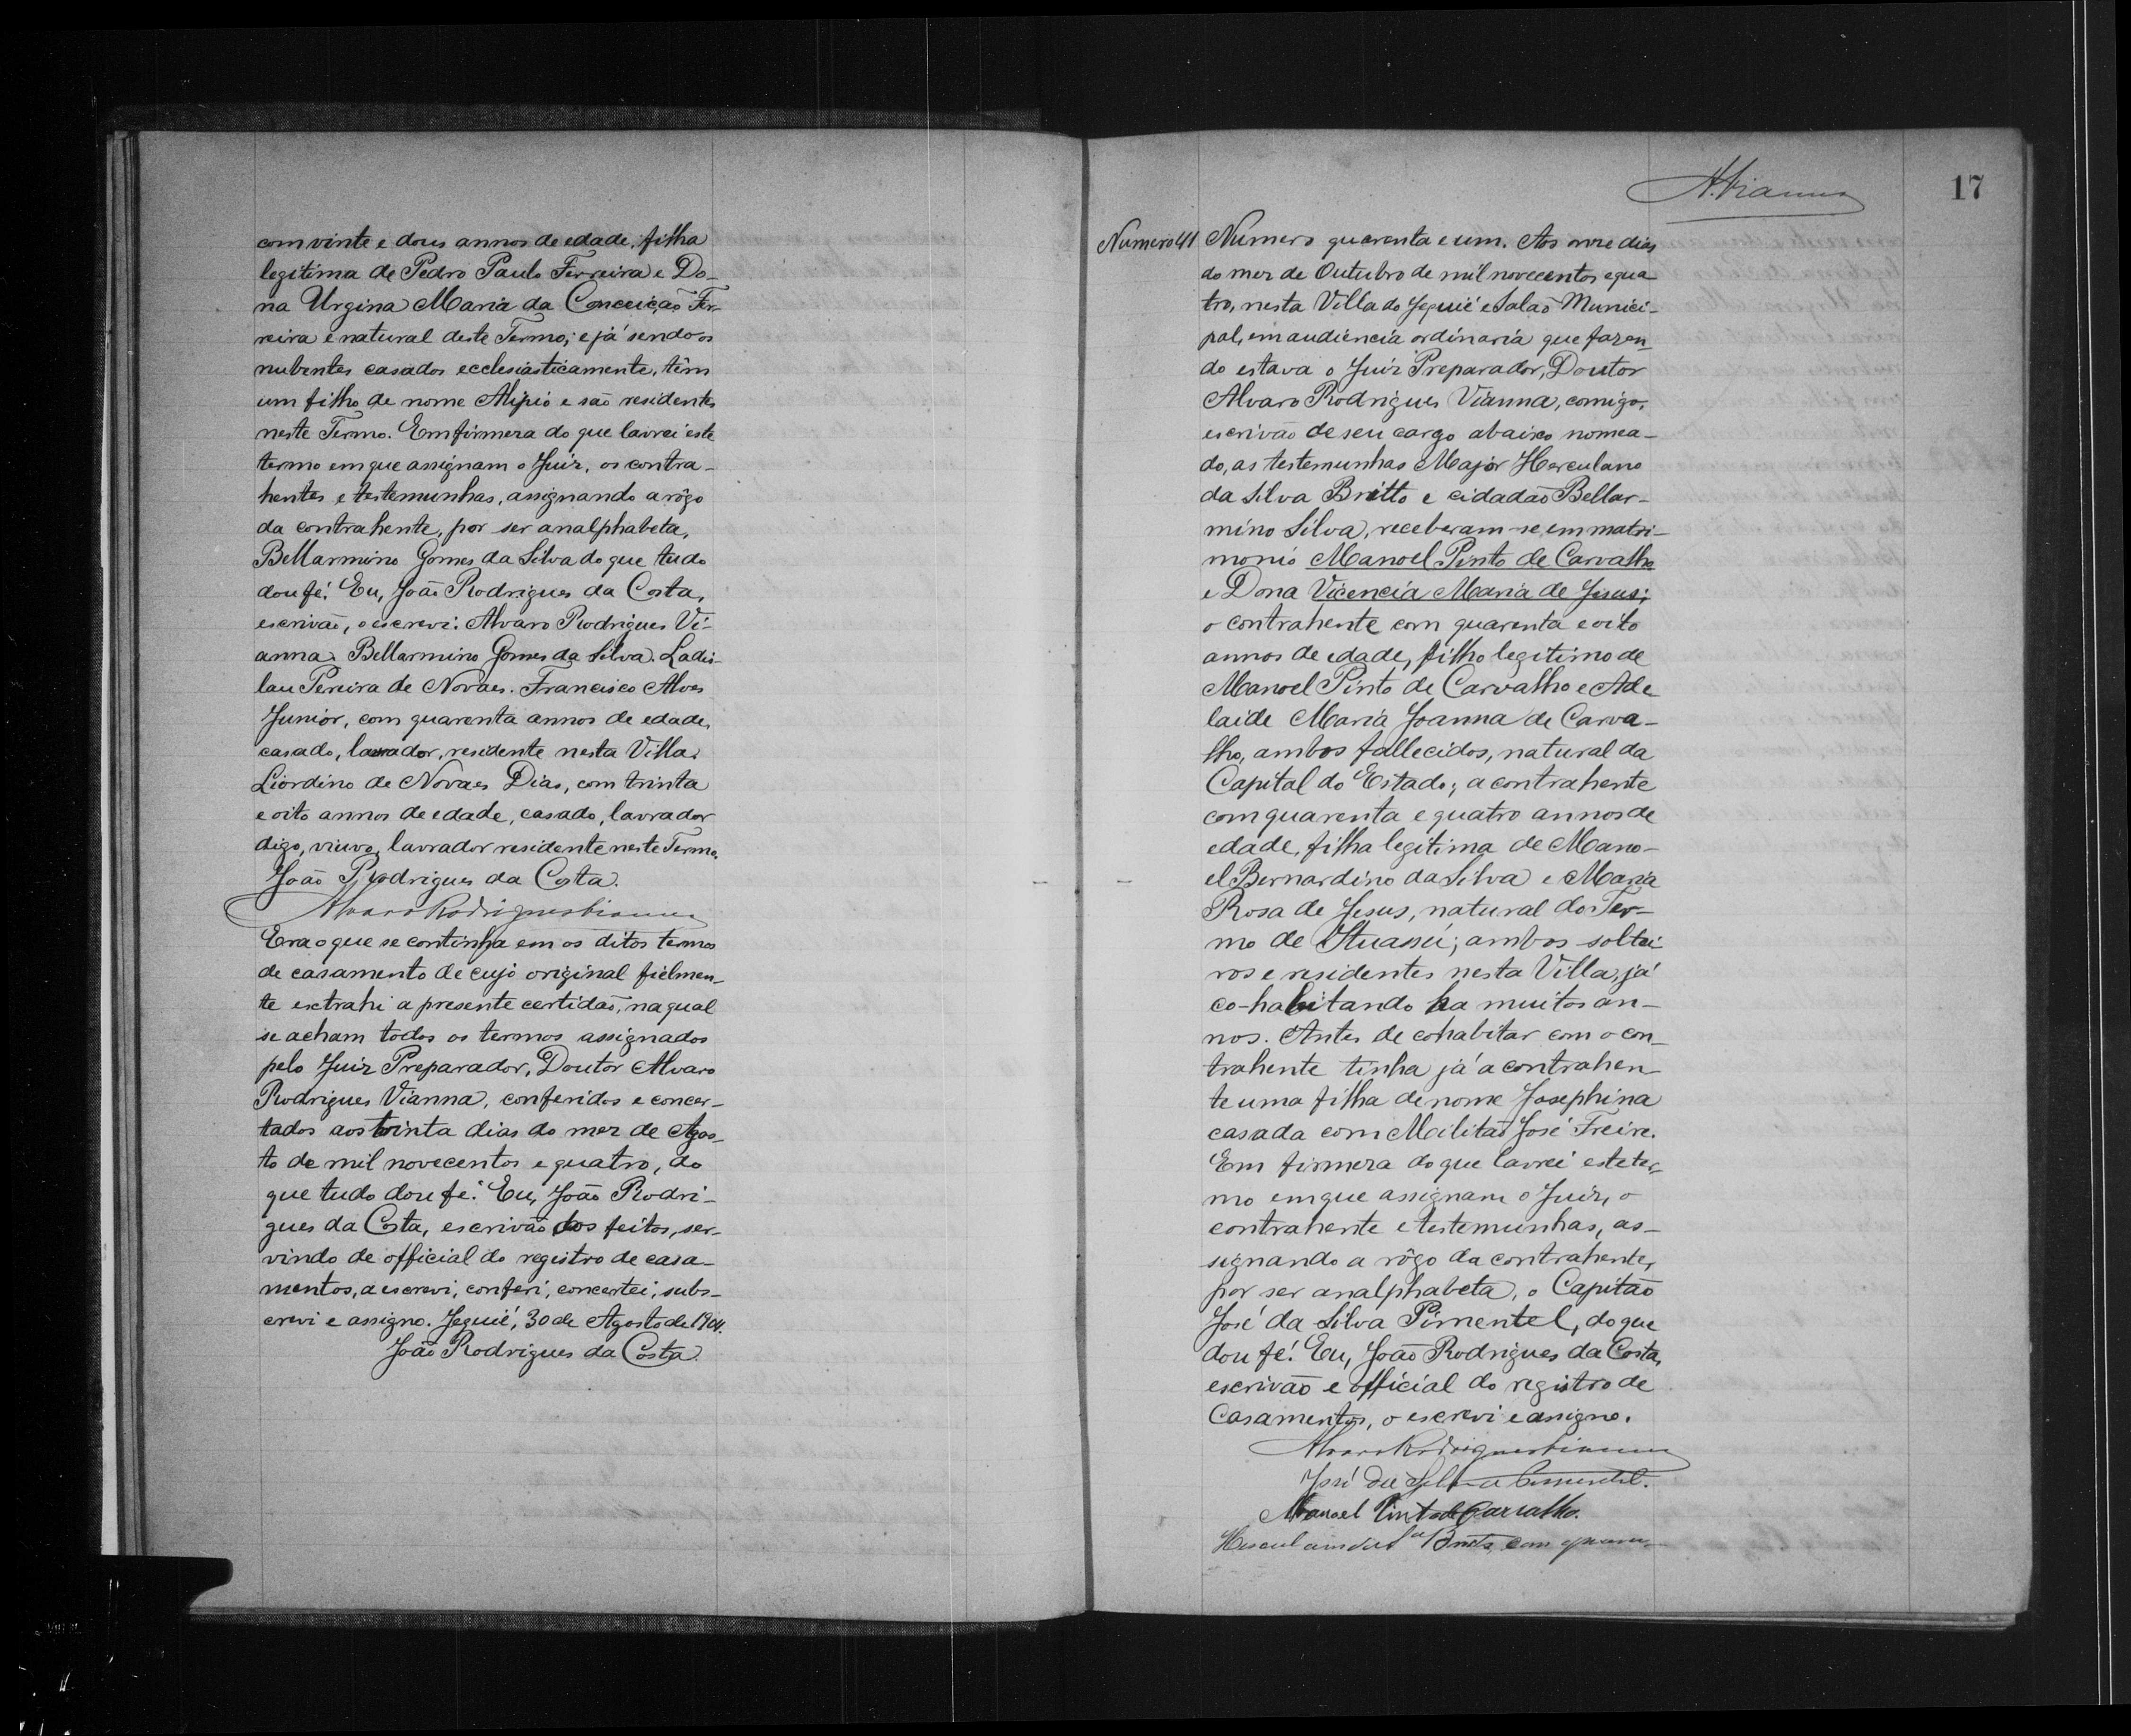 com vinte e dous annos de edade, filha
legitima de Pedro Paulo Ferreira e Do-
na Urgina Maria da Conceição Fer-
reira e natural deste Termo; e já sendo os
nubentes casados ecclesiasticamente, têm
um filho de nome Alipio e são residentes
neste Termo. Em firmeza do que lavrei este
termo em que assignam o Juiz, os contra-
hentes e testemunhas, assignando a rôgo
da contrahente, por ser analphabeta,
Bellarmino Gomes da Silva do que tudo
dou fé. Eu, João Rodrigues da Costa,
escrivão, o escrevi. Alvaro Rodrigues Vi-
anna. Bellarmino Gomes da Silva. Ladis-
lau Pereira de Novaes. Francisco Alves
Junior, com quarenta annos de edade,
casado, lavrador, residente nesta Villa.
Liordino de Novaes Dias, com trinta
e oito annos de edade, casado, lavrador
digo, viuvo, lavrador residente neste Termo.
João Rodrigues da Costa.
Alvaro Rodrigues Vianna
Era o que se continha em os ditos termos
de casamento de cujo original fielmen-
te extrahi a presente certidão, na qual
se acham todos os termos assignados
pelo Juiz Preparador, Doutor Alvaro
Rodrigues Vianna, conferidos e concer-
tados aos trinta dias do mez de Agos-
to de mil novecentos e quatro, do
que tudo dou fé. Eu, João Rodri-
gues da Costa, escrivão dos feitos, ser-
vindo de official do registro de casa-
mentos, a escrevi, conferi, concertei, subs-
crevi e assigno. Jequié, 30 de Agosto de 1904.
João Rodrigues da Costa.
A. Vianna
17
Numero 41 Numero quarenta e um. Aos onze dias
do mez de Outubro de mil novecentos e qua
tro, nesta Villa do Jequié e Salão Munici-
pal, em audiencia ordinaria que fazen-
do estava o Juiz Preparador, Doutor
Alvaro Rodrigues Vianna, comigo,
escrivão de seu cargo abaixo nomea-
do, as testemunhas Major Herculano
da Silva Britto e cidadão Bellar-
mino Silva, receberam-se em matri-
monio Manoel Pinto de Carvalho
e Dona Vicencia Maria de Jesus;
o contrahente com quarenta e oito
annos de edade, filho legitimo de
Manoel Pinto de Carvalho e Ade
laide Maria Joanna de Carva-
lho, ambos fallecidos, natural da
Capital do Estado; a contrahente
com quarenta e quatro annos de
edade, filha legitima de Mano-
el Bernardino da Silva e Maria
Rosa de Jesus, natural do Ter-
mo de Ituassú; ambos soltei-
ros e residentes nesta Villa, já
co-habitando ha muitos an-
nos. Antes de cohabitar com o con-
trahente tinha já a contrahen
te uma filha de nome Josephina
casada com Militão José Freire.
Em firmeza do que lavrei este ter-
mo em que assignam o Juiz, o
contrahente e testemunhas, as-
signando a rôgo da contrahente,
por ser analphabeta, o Capitão
José da Silva Pimentel, do que
dou fé. Eu, João Rodrigues da Costa,
escrivão e official do registro de
Casamentos, o escrevi e assigno.
Alvaro Rodrigues Vianna
José da Silva Pimentel.
Manoel Pinto de Carvalho.
Herculano da Sa Britto, com quaren-